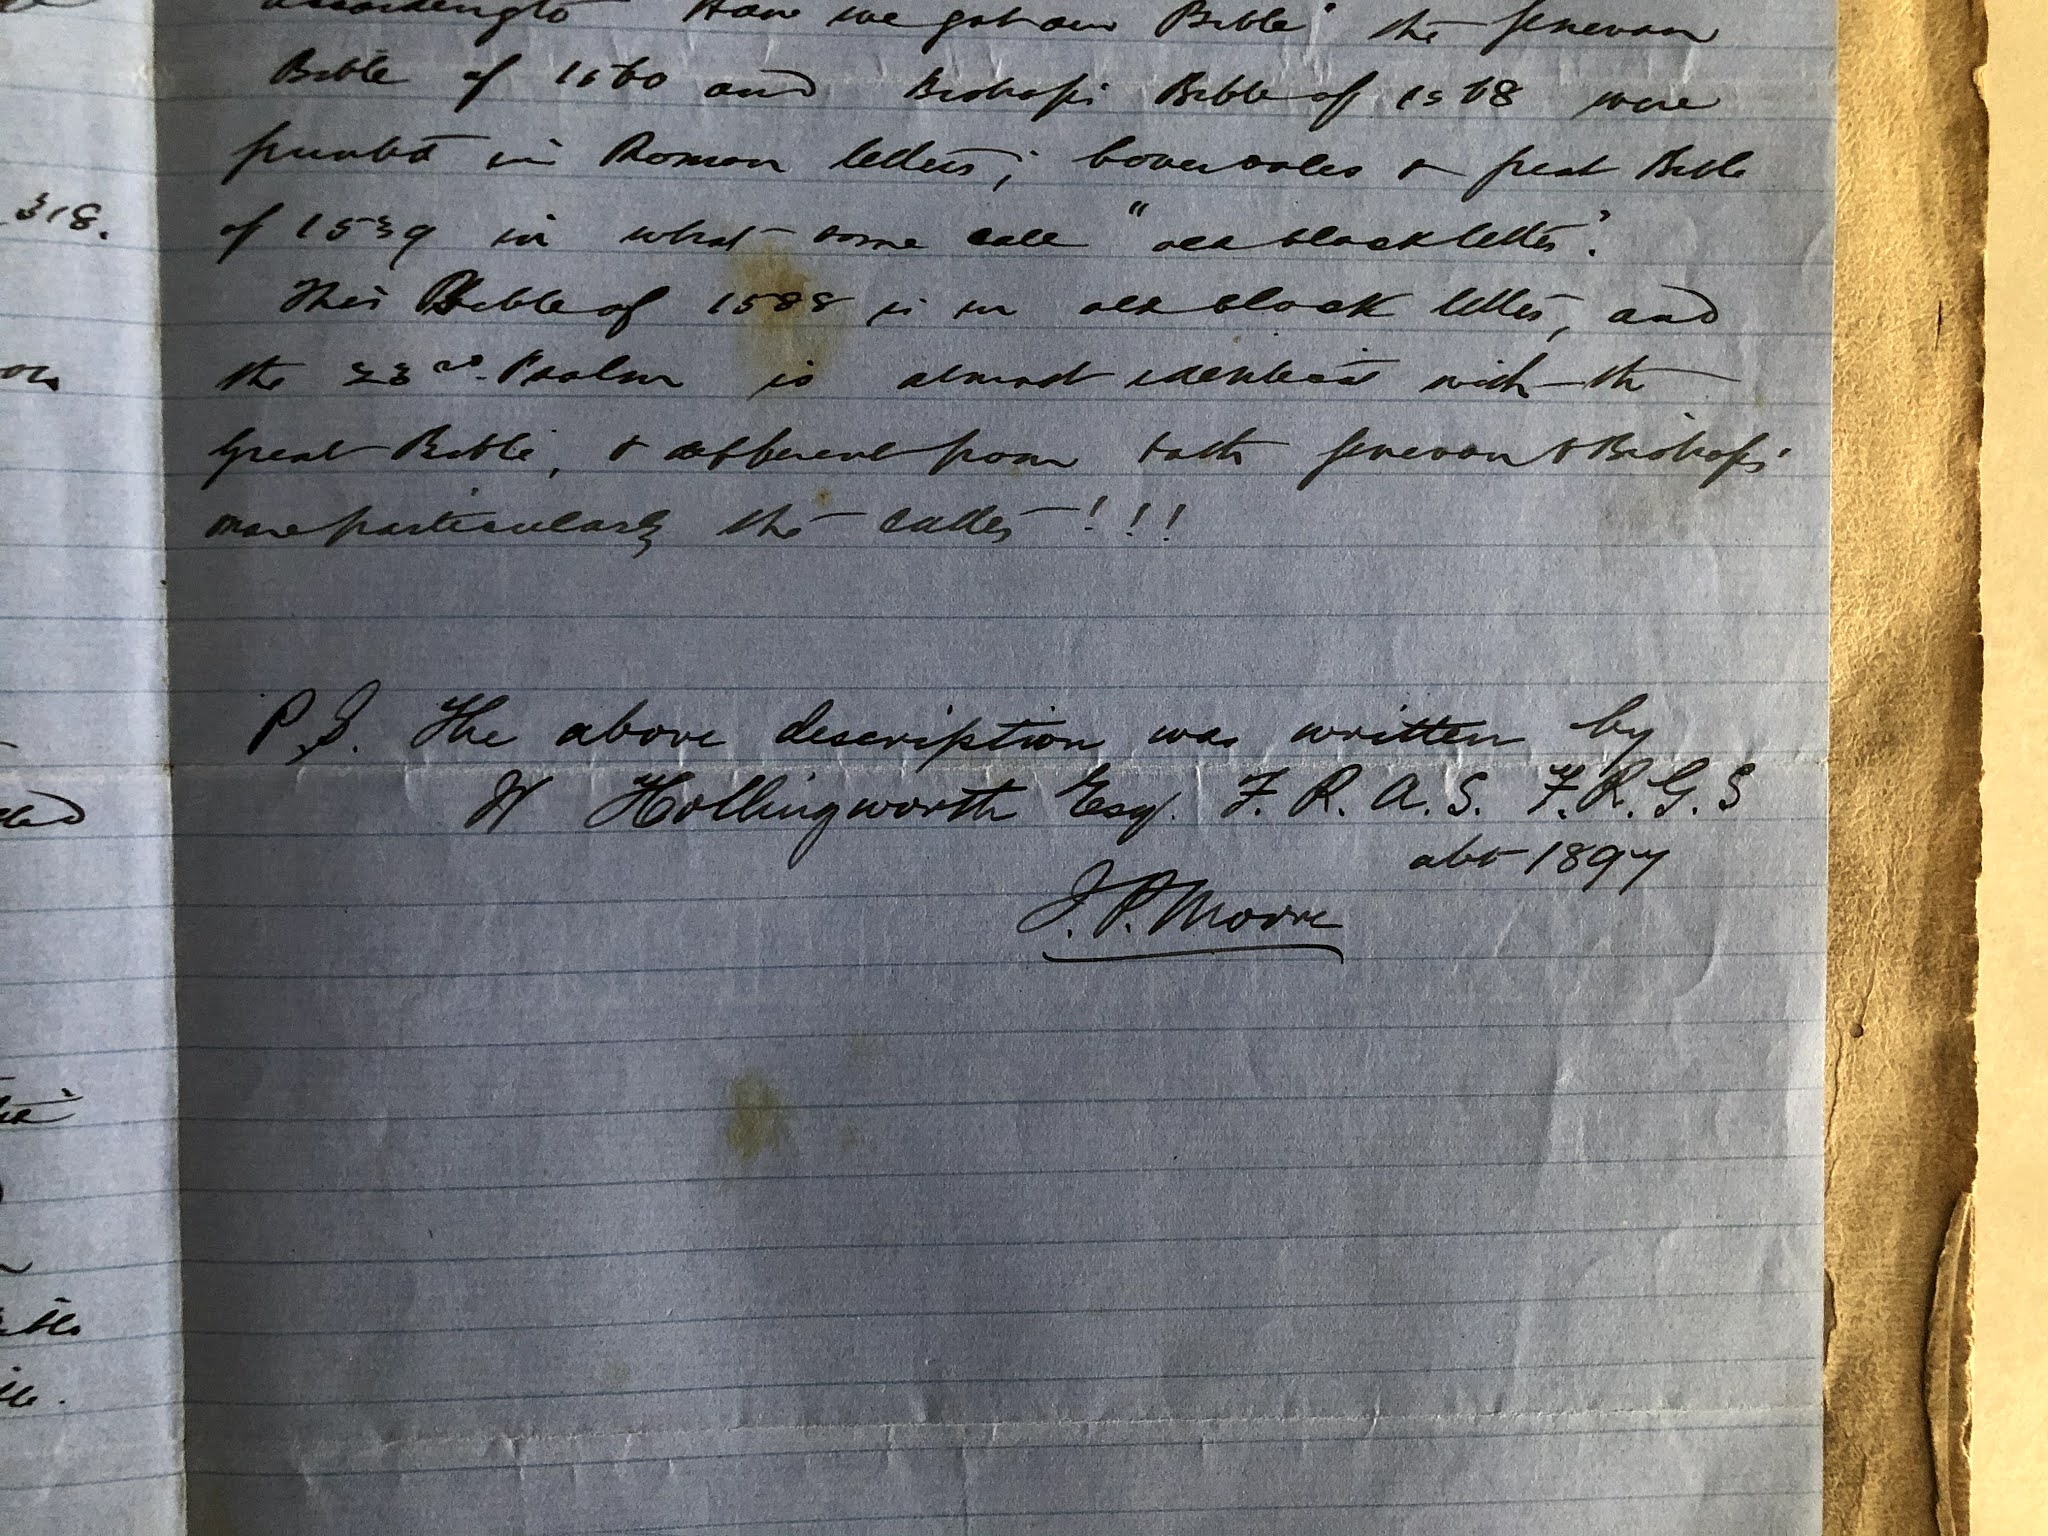 according to "How we got our Bible" the Genevan
Bible of 1560 and Bishops Bible of 1568 were
printed in Roman letters; Coverdales & Great Bible
of 1539 in what some call "old black letter".
This Bible of 1588 is in old black letter, and
the 23rd. Psalm is almost identical with the
Great Bible, & different from both Genevan & Bishops'
more particularly the latter!!!
P.S. The above description was written by
W Hollingworth Esq. F.R.A.S. F.R.G.S
abt 1897
J.P. Moore
318.